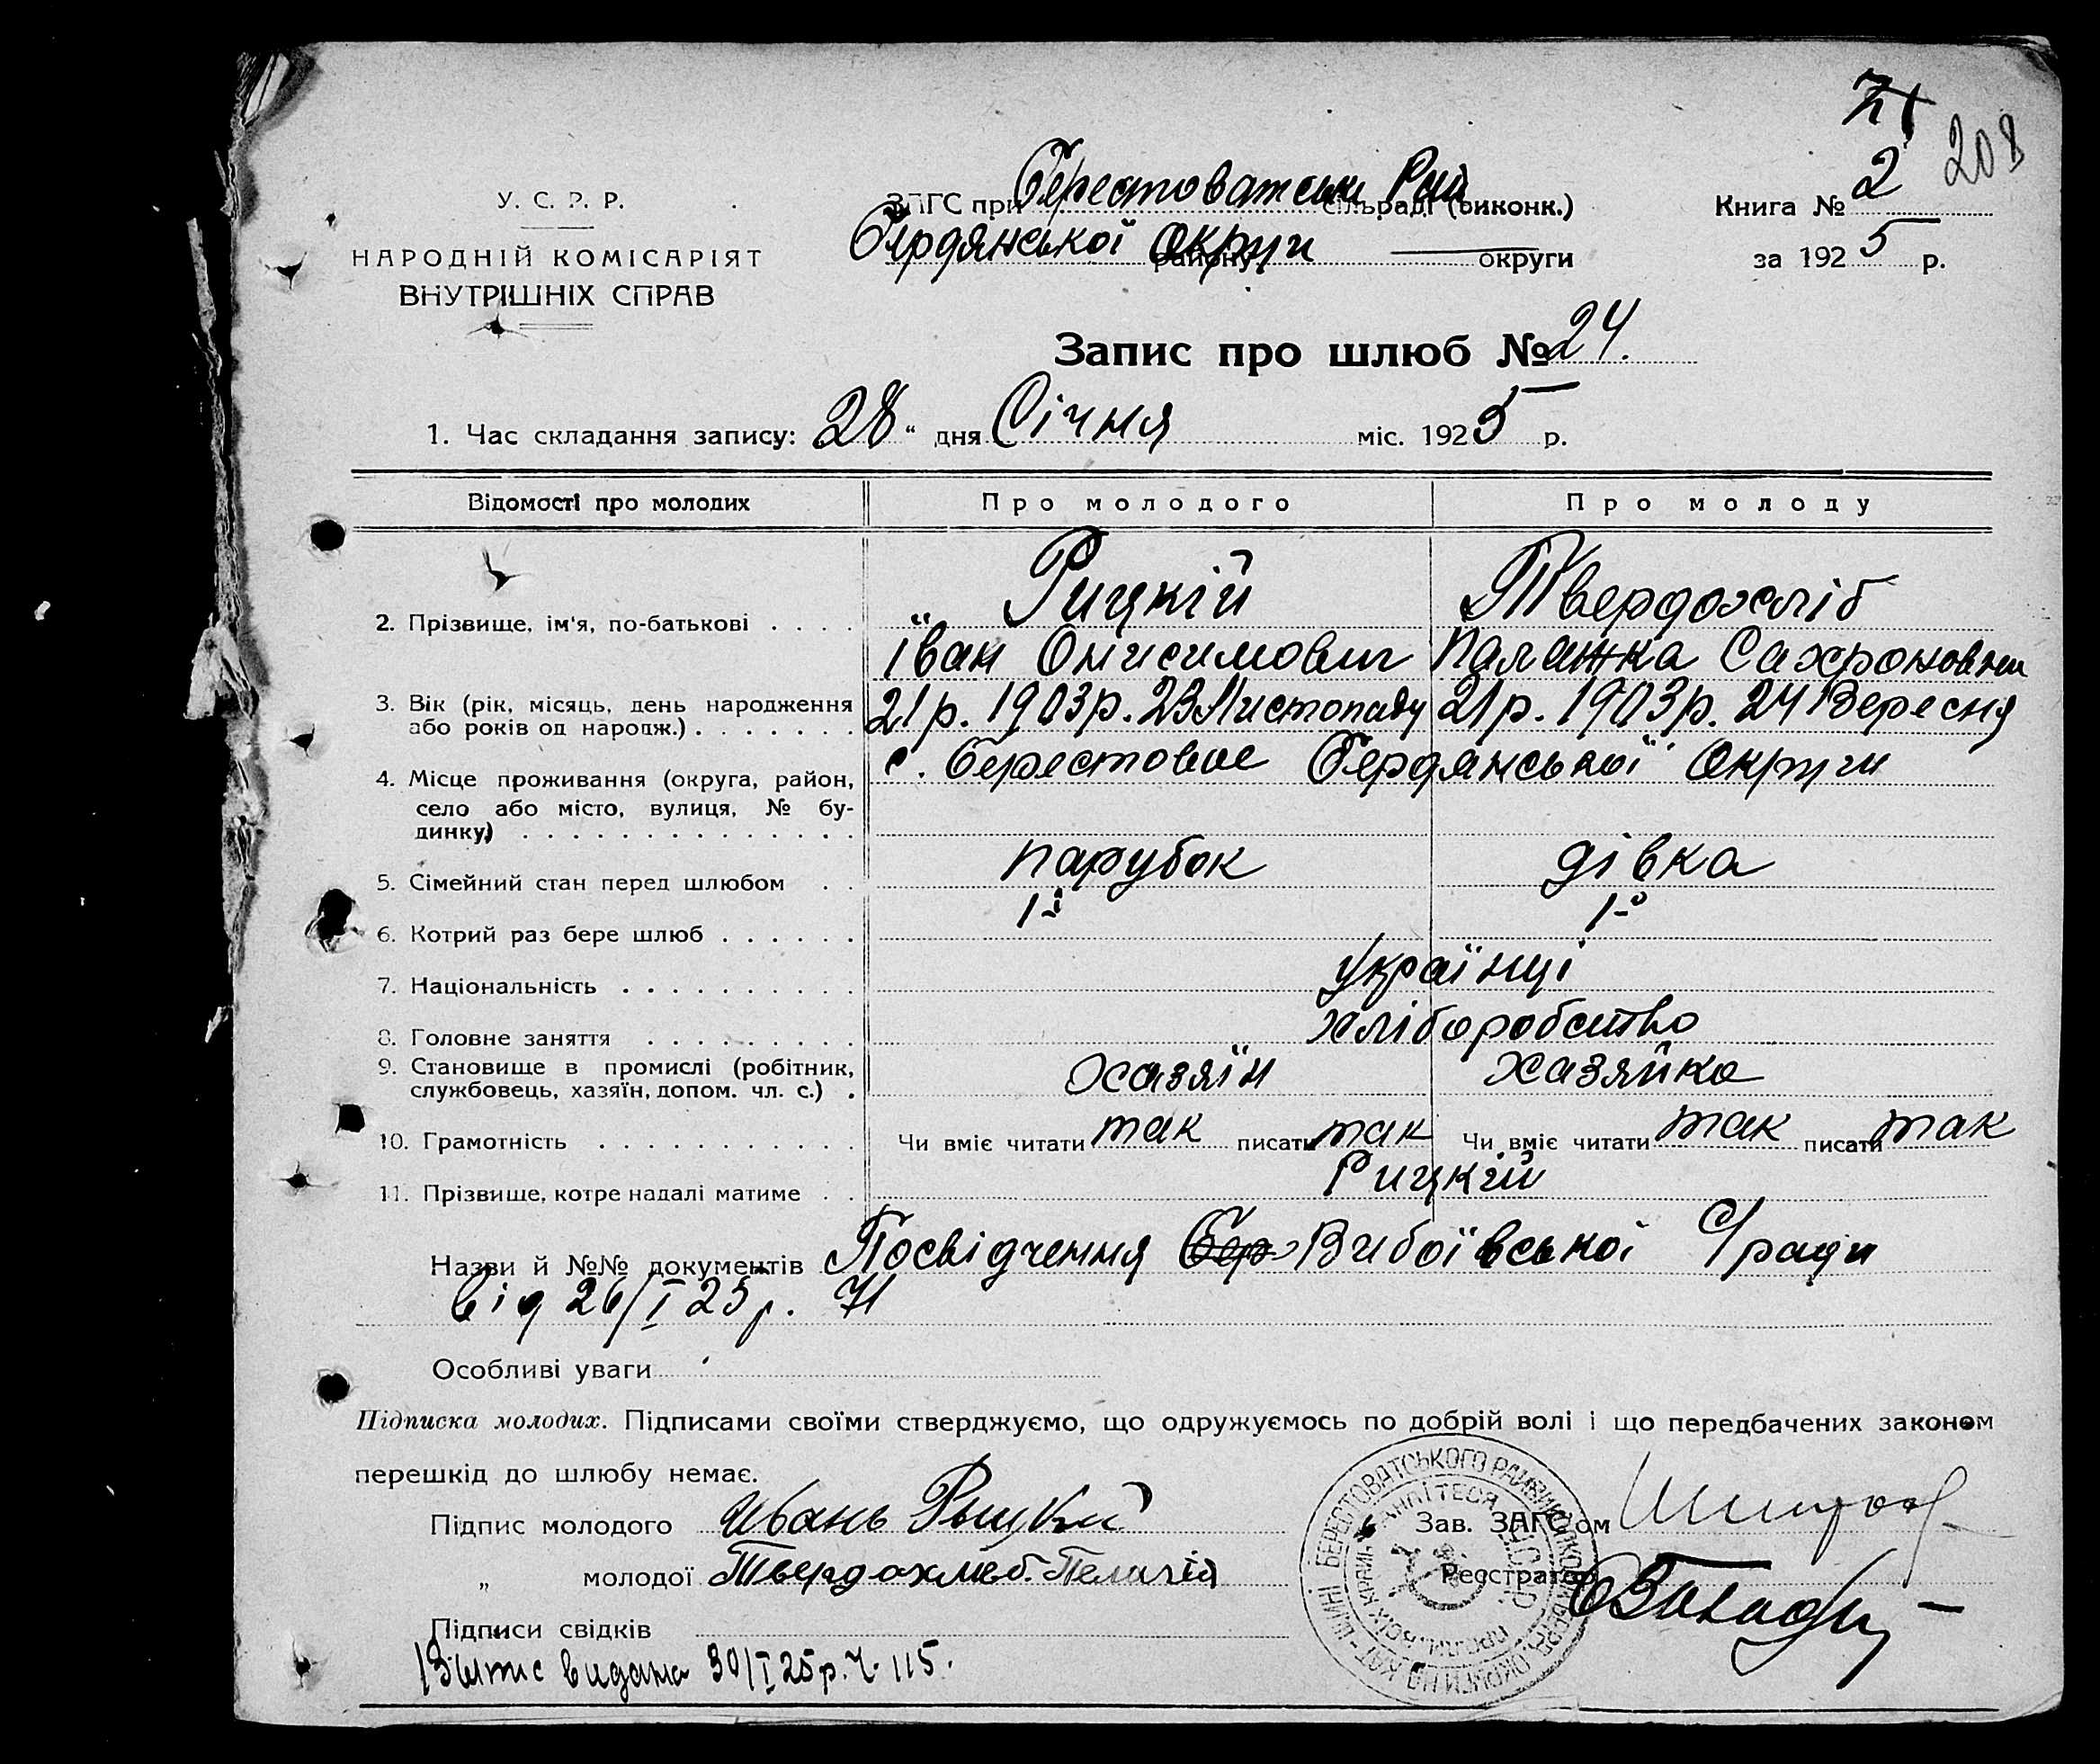 71
208
У. С. Р. Р.
НАРОДНІЙ КОМІСАРІЯТ
ВНУТРІШНІХ СПРАВ
ЗАГС при Берестоватськ Рай сільраді (виконк.)
Бердянської Округи району округи
Книга № 2
за 1925 р.
Запис про шлюб № 24.
1. Час складання запису: 28 " дня Січня міс. 1925 р.
Відомості про молодих Про молодого Про молоду
Рицкій Твердохліб
2. Прізвище, ім'я, по-батькові . . . .
Іван Онисимович Палажка Сахроновна
3. Вік (рік, місяць, день народження 21 р. 1903 р. 23 Листопаду 21 р. 1903 р. 24 Вересня
або років од народж.) . . . . . . .
с. Берестовое Бердянської Округи
4. Місце проживання (округа, район,
село або місто, вулиця, № бу-
динку) . . . . . . . . . . . . . .
5. Сімейний стан перед шлюбом . . парубок дівка
6. Котрий раз бере шлюб . . . . . . 1-й 1-й
7. Національність . . . . . . . . . . Українці
8. Головне заняття . . . . . . . . . хліборобство
9. Становище в промислі (робітник, хазяїн хазяйка
службовець, хазяїн, допом. чл. с.) .
10. Грамотність . . . . . . . . . . . Чи вміє читати так писати так Чи вміє читати так писати так
11. Прізвище, котре надалі матиме . . Рицкій
Назви й №№ документів Посвідчення Бер Вибоївської С/ради
від 26/I 25 р. 71
Особливі уваги
Підписка молодих. Підписами своїми стверджуємо, що одружуємось по добрій волі і що передбачених законом
перешкід до шлюбу немає.
Підпис молодого Ивань Рыцкий
Зав. ЗАГС'ом
„ молодої Твердохлеб. Пелагія
Реєстратор
Підписи свідків
Витис видана 30/I 25 р. Ч. 115.
БЕРЕСТОВАТСЬКОГО РАЙВИКОНКОМ